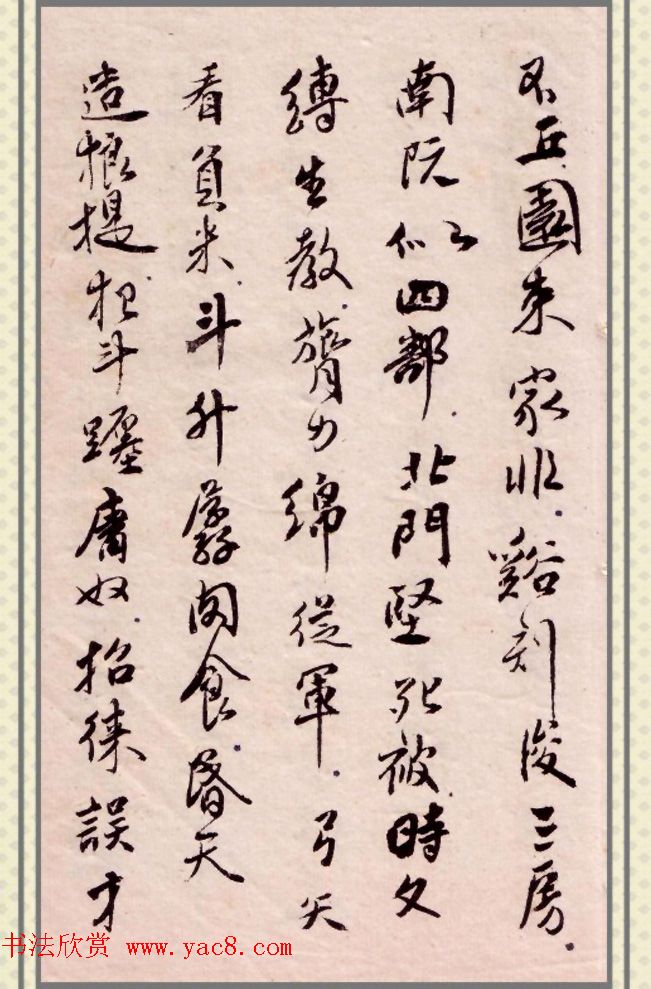 不丘園束家非谿刻後三房
南阮似四鄰北門堅死被時文
縛生教膂力綿從軍弓矢
看負米斗升孱肉食昏天
造根提担斗躔庸奴招徠誤才
书法欣赏 www.yac8.com